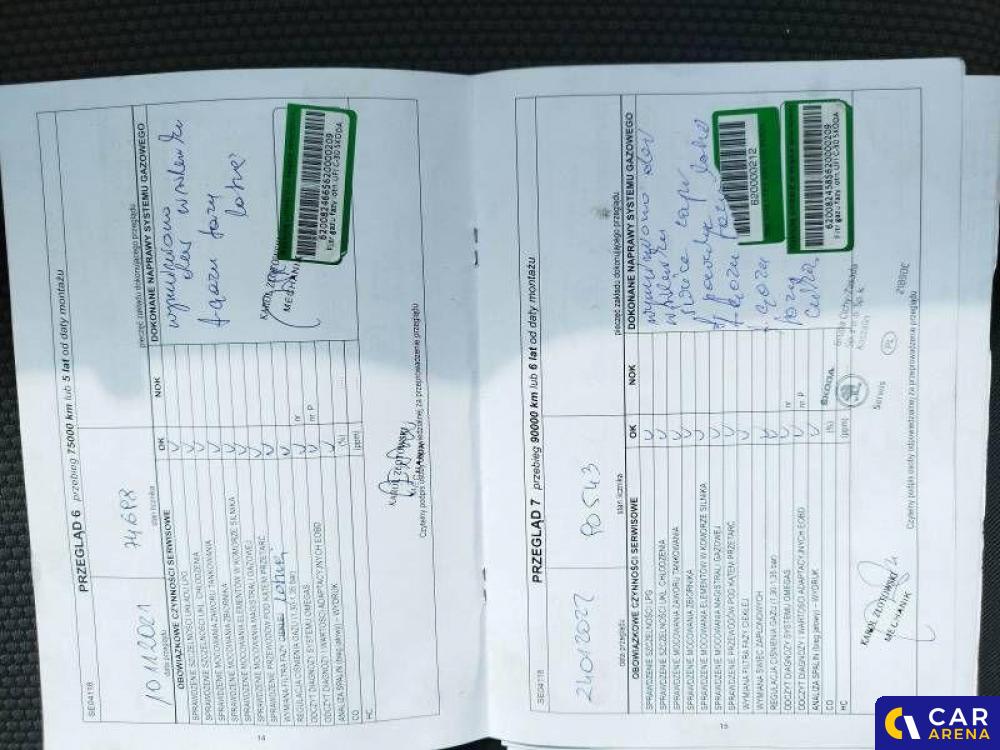 SE04118
PRZEGLĄD 6 przebieg 75000 km lub 5 lat od daty montażu
10 11 2021
data przeglądu
stan licznika
pieczęć zakładu dokonującego przeglądu
OBOWIĄZKOWE CZYNNOŚCI SERWISOWE
OK
NOK
DOKONANE NAPRAWY SYSTEMU GAZOWEGO
SPRAWDZENIE SZCZELNOŚCI UKŁADU LPG
SPRAWDZENIE SZCZELNOŚCI UKŁ. CHŁODZENIA
SPRAWDZENIE MOCOWANIA ZAWORU TANKOWANIA
SPRAWDZENIE MOCOWANIA ZBIORNIKA
SPRAWDZENIE MOCOWANIA ELEMENTÓW W KOMORZE SILNIKA
SPRAWDZENIE MOCOWANIA MAGISTRALI GAZOWEJ
SPRAWDZENIE PRZEWODÓW POD KĄTEM PRZETARĆ
WYMIANA FILTRA FAZY
REGULACJA CIŚNIENIA GAZU (1,30-1,35 bar)
nr
ODCZYT DIAGNOZY SYSTEMU OMEGAS
nr P
ODCZYT DIAGNOZY I WARTOŚCI ADAPTACYJNYCH EOBD
ANALIZA SPALIN (bieg jałowy) – WYDRUK
CO
(%)
HC
(ppm)
wymieniono
filtr
gazu fazy
lotnej
6200824665620000209
Filtr gazu fazy lotn. UFI C-30 SKODA
KAROL ZŁOTOWSKI
MECHANIK
KAROL ZŁOTOWSKI
MECHANIK
Czytelny podpis osoby odpowiedzialnej za przeprowadzenie przeglądu
14
SE04118
PRZEGLĄD 7 przebieg 90000 km lub 6 lat od daty montażu
24 01 2022
data przeglądu
90543
stan licznika
pieczęć zakładu dokonującego przeglądu
OBOWIĄZKOWE CZYNNOŚCI SERWISOWE
OK
NOK
DOKONANE NAPRAWY SYSTEMU GAZOWEGO
SPRAWDZENIE SZCZELNOŚCI LPG
SPRAWDZENIE SZCZELNOŚCI UKŁ. CHŁODZENIA
SPRAWDZENIE MOCOWANIA ZAWORU TANKOWANIA
SPRAWDZENIE MOCOWANIA ZBIORNIKA
SPRAWDZENIE MOCOWANIA ELEMENTÓW W KOMORZE SILNIKA
SPRAWDZENIE MOCOWANIA MAGISTRALI GAZOWEJ
SPRAWDZENIE PRZEWODÓW POD KĄTEM PRZETARĆ
WYMIANA FILTRA FAZY CIEKŁEJ
WYMIANA ŚWIEC ZAPŁONOWYCH
REGULACJA CIŚNIENIA GAZU (1,30-1,35 bar)
ODCZYT DIAGNOZY SYSTEMU OMEGAS
nr
ODCZYT DIAGNOZY I WARTOŚCI ADAPTACYJNYCH EOBD
nr P
ANALIZA SPALIN (bieg jałowy) – WYDRUK
CO
(%)
HC
(ppm)
wymieniono olej
świece
gazu fazy lotnej
i gazu
fazy
620000212
6200824585620000209
Filtr gazu fazy lotn. UFI C-30 SKODA
ŠKODA
Serwis
PL
21880C
KAROL ZŁOTOWSKI
MECHANIK
Czytelny podpis osoby odpowiedzialnej za przeprowadzenie przeglądu
15
CAR
ARENA